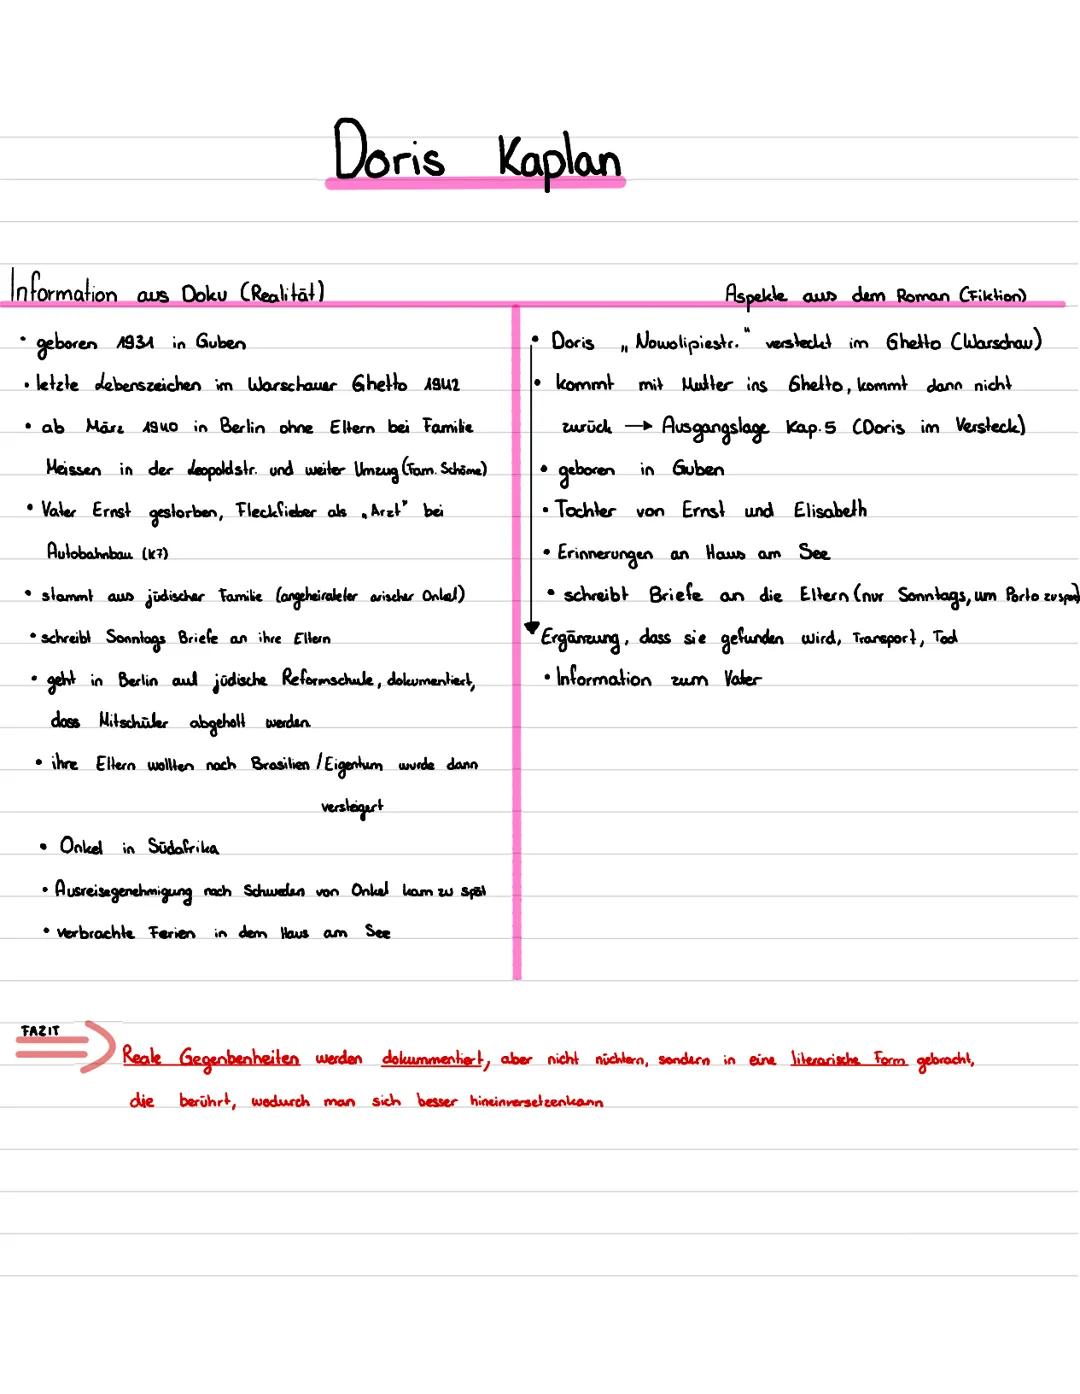 Doris Kaplan
Information aus Doku (Realität)
• geboren 1931 in Guben
• letzte Lebenszeichen im Warschauer Ghetto 1942
• ab März 1940 in Berlin ohne Eltern bei Familie
Meissen in der Leopoldstr. und weiter Umzug (Fam. Schöme)
• Vater Ernst gestorben, Fleckfieber als „Arzt" bei
Autobahnbau (K7)
• stammt aus jüdischer Familie (angeheirateter arischer Onkel)
• schreibt Sonntags Briefe an ihre Eltern
• geht in Berlin auf jüdische Reformschule, dokumentiert,
dass Mitschüler abgeholt werden
• ihre Eltern wollten nach Brasilien / Eigentum wurde dann
versteigert
• Onkel in Südafrika
• Ausreisegenehmigung nach Schweden von Onkel kam zu spät
• verbrachte Ferien in dem Haus am See
Aspekte aus dem Roman (Fiktion)
• Doris „Nowolipiestr." versteckt im Ghetto (Warschau)
• kommt mit Mutter ins Ghetto, kommt dann nicht
zurück → Ausgangslage Kap. 5 (Doris im Versteck)
• geboren in Guben
• Tochter von Ernst und Elisabeth
• Erinnerungen an Haus am See
• schreibt Briefe an die Eltern (nur Sonntags, um Porto zu
Ergänzung, dass sie gefunden wird, Transport, Tod
• Information zum Vater
FAZIT
Reale Gegenbenheiten werden dokummentiert, aber nicht nüchtern, sondern in eine literarische Form gebracht,
die berührt, wodurch man sich besser hineinversetzenkann